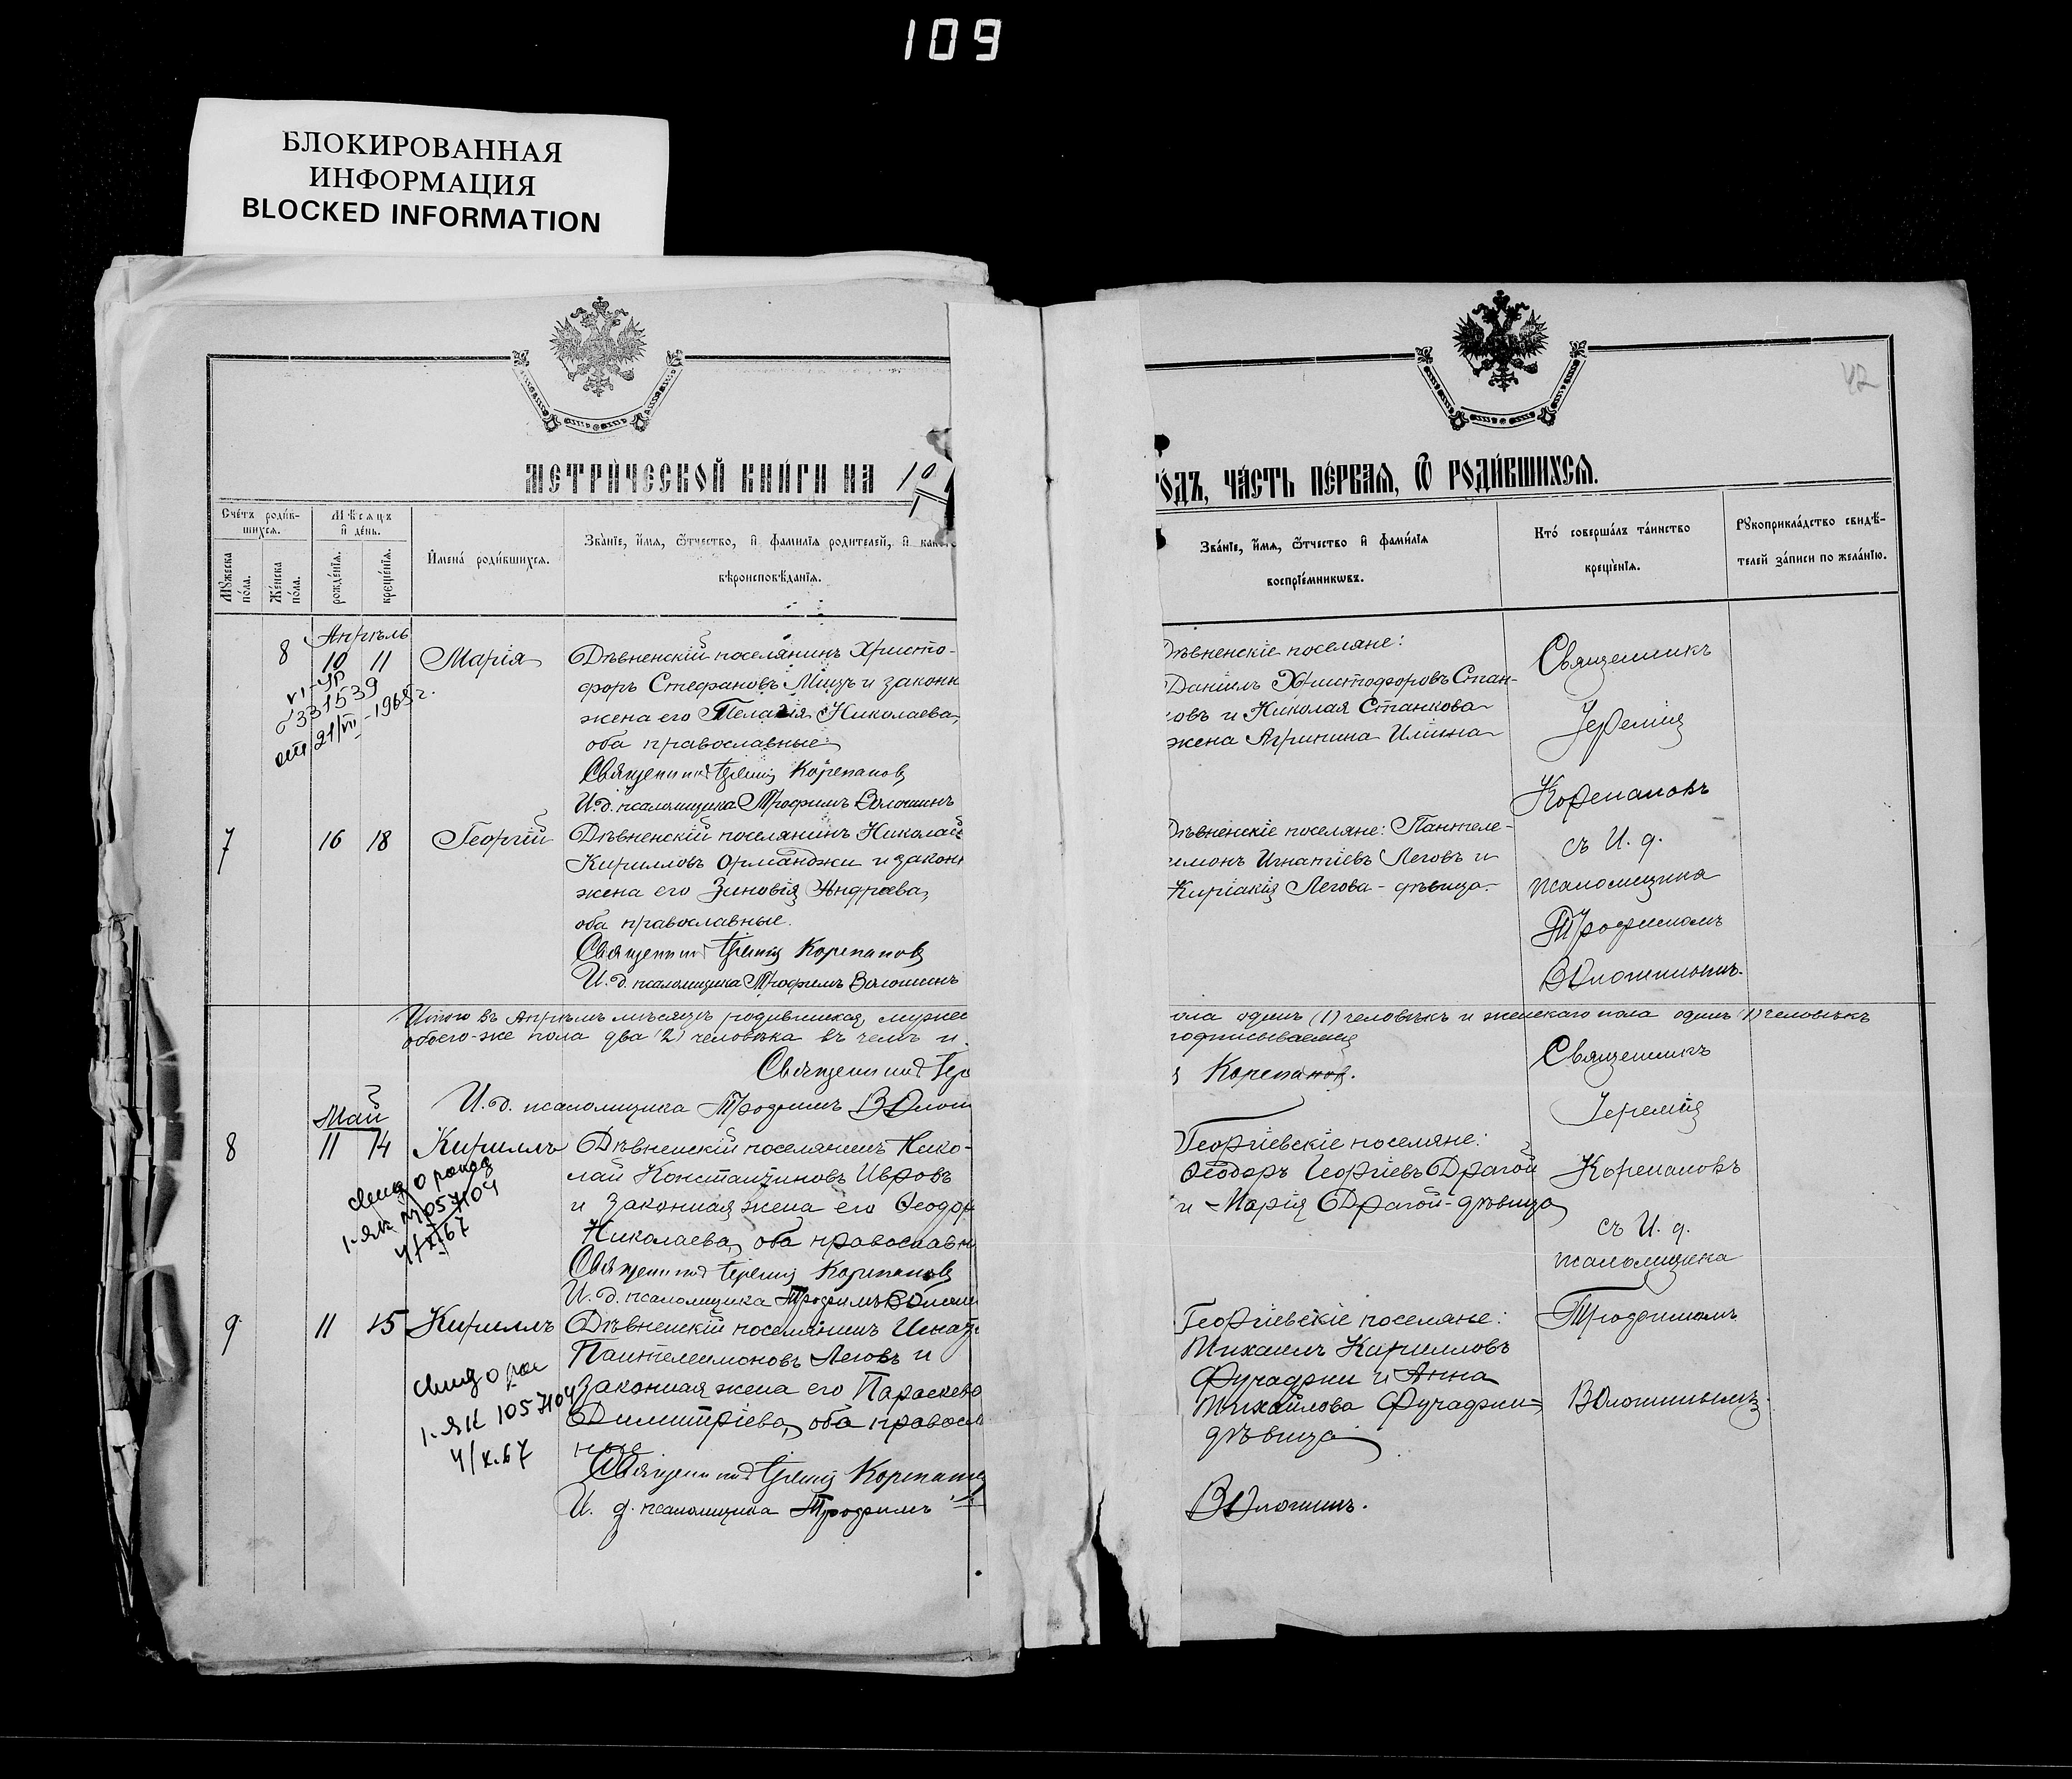 109
БЛОКИРОВАННАЯ
ИНФОРМАЦИЯ
BLOCKED INFORMATION
42
МЕТРИ́ЧЕСКОЙ КНИ́ГИ НА
ГО́ДЪ, ЧА́СТЬ ПЕ́РВАЯ, Ѿ РОДИ́ВШИХСЯ.
Сче́тъ роди́в-
шихся.
Му́жеска по́ла.
Же́нска по́ла.
Мѣсяцъ
и де́нь.
рожде́нія.
креще́нія.
Имена́ роди́вшихся.
Зва́ніе, и́мя, ѻ́тчество, и фами́лія родителей, и како
вѣроисповѣ́данія.
Зва́ніе, и́мя, ѻ́тчество и фами́лія
воспріе́мниковъ.
Кто́ соверша́лъ та́инство
креще́нія.
Рꙋкоприкла́дство свидѣ́-
телей за́писи по жела́нію.
Апрѣль
8 10 11 Марія
331539
21/VII-1965г.
Дѣвненскій поселянинъ Христо-
форъ Стефановъ и законн
жена его Пелагія Николаева,
оба православные
Священникъ Іеремія Корепановъ
И.д. псаломщика Трофимъ Волошинъ
Дѣвненскіе поселяне:
Даніилъ Христофоровъ Стан-
ковъ и Николая Станкова
жена Агрипина Иліина
7 16 18 Георгій
Дѣвненскій поселянинъ Николай
Кирилловъ Орманджи и законн
жена его Зиновія Андреева,
оба православные.
Священникъ Іеремія Корепановъ
И.д. псаломщика Трофимъ Волошинъ
Дѣвненскіе поселяне: Пантеле-
имонъ Игнатіевъ Леговъ и
Киріакія Легова - дѣвица
Священникъ
Іеремія
Корепановъ
съ И. д.
псаломщика
Трофимомъ
Волошинымъ.
Итого въ Апрѣлѣ мѣсяцѣ родившихся мужес
ола одинъ (1) человѣкъ и женскаго пола одинъ (1) человѣкъ
обоего-же пола два (2) человѣка въ чемъ и
подписываемся
Священникъ Іере
Корепановъ.
И.д. псаломщика Трофимъ Волош
Май
8 11 14 Кириллъ
1057104
Дѣвненскій поселянинъ Нико-
лай Константиновъ Ивровъ
и законная жена его Ѳеодор
Николаева, оба православн
Священникъ Іеремія Корепановъ
И. д. псаломщика Трофимъ Волоши
Георгіевскіе поселяне:
Ѳеодоръ Георгіевъ Драгой
и Марія Драгой - дѣвица
9 11 15 Кириллъ
1-ЯК 1057104
4/X.67
Дѣвненскій поселянинъ Игнатъ
Пантелеимоновъ Леговъ и
законная жена его Параскева
Димитріева, оба правосл
ные
Священникъ Іеремія Корепановъ
И. д. псаломщика Трофимъ
Георгіевскіе поселяне:
Михаилъ Кирилловъ
Фучаджи и Анна
Михайлова Фучаджи -
дѣвица
Волошинъ.
Священникъ
Іеремія
Корепановъ
съ И. д.
псаломщика
Трофимомъ
Волошинымъ.